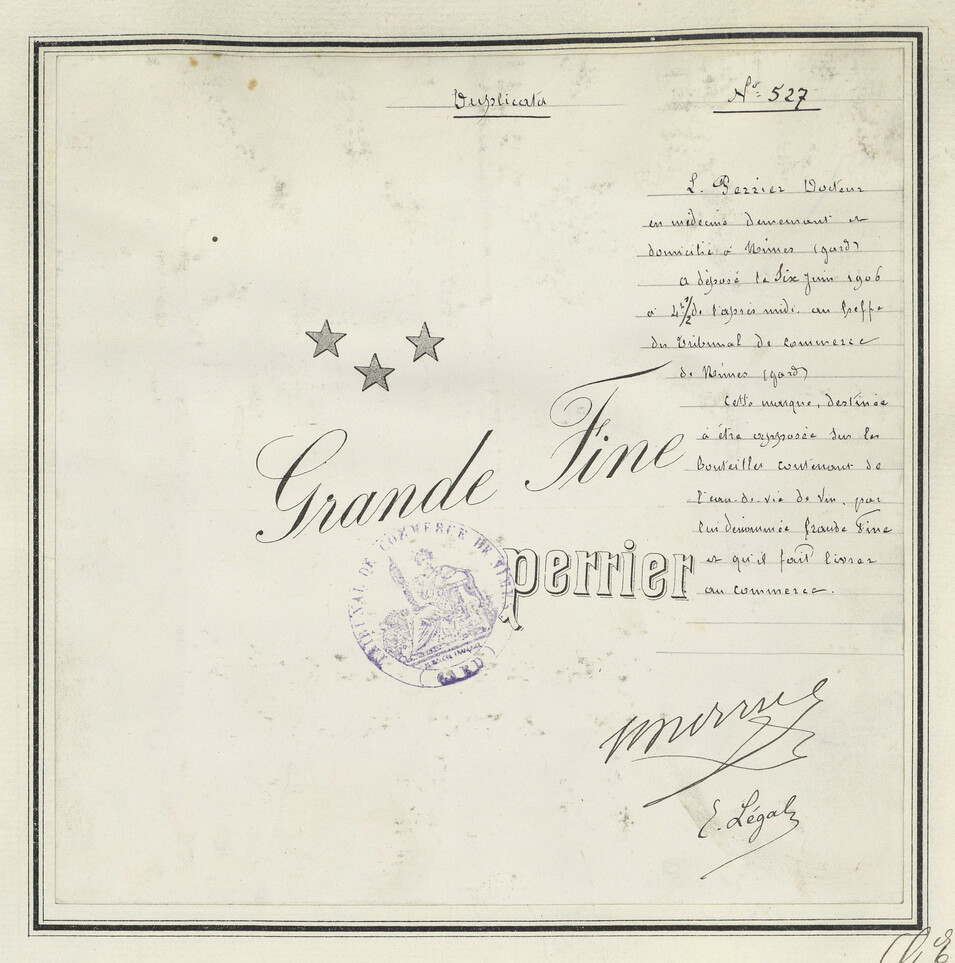 Duplicata
Nº 527
L. Perrier Docteur
en médecine demeurant et
domicilié à Nimes (gard)
a déposé le Six Juin 1906
à 4h 1/2 de l'après midi. au Greffe
du Tribunal de commerce
de Nimes (gard)
Cette marque, destinée
à être apposée sur les
Bouteilles contenant de
l'eau-de-vie de Vin, par
lui dénommée Grande Fine
et qu'il fait livrer
au commerce.
Grande Fine
perrier
TRIBUNAL DE COMMERCE DE NIMES
(GARD)
E. Légal